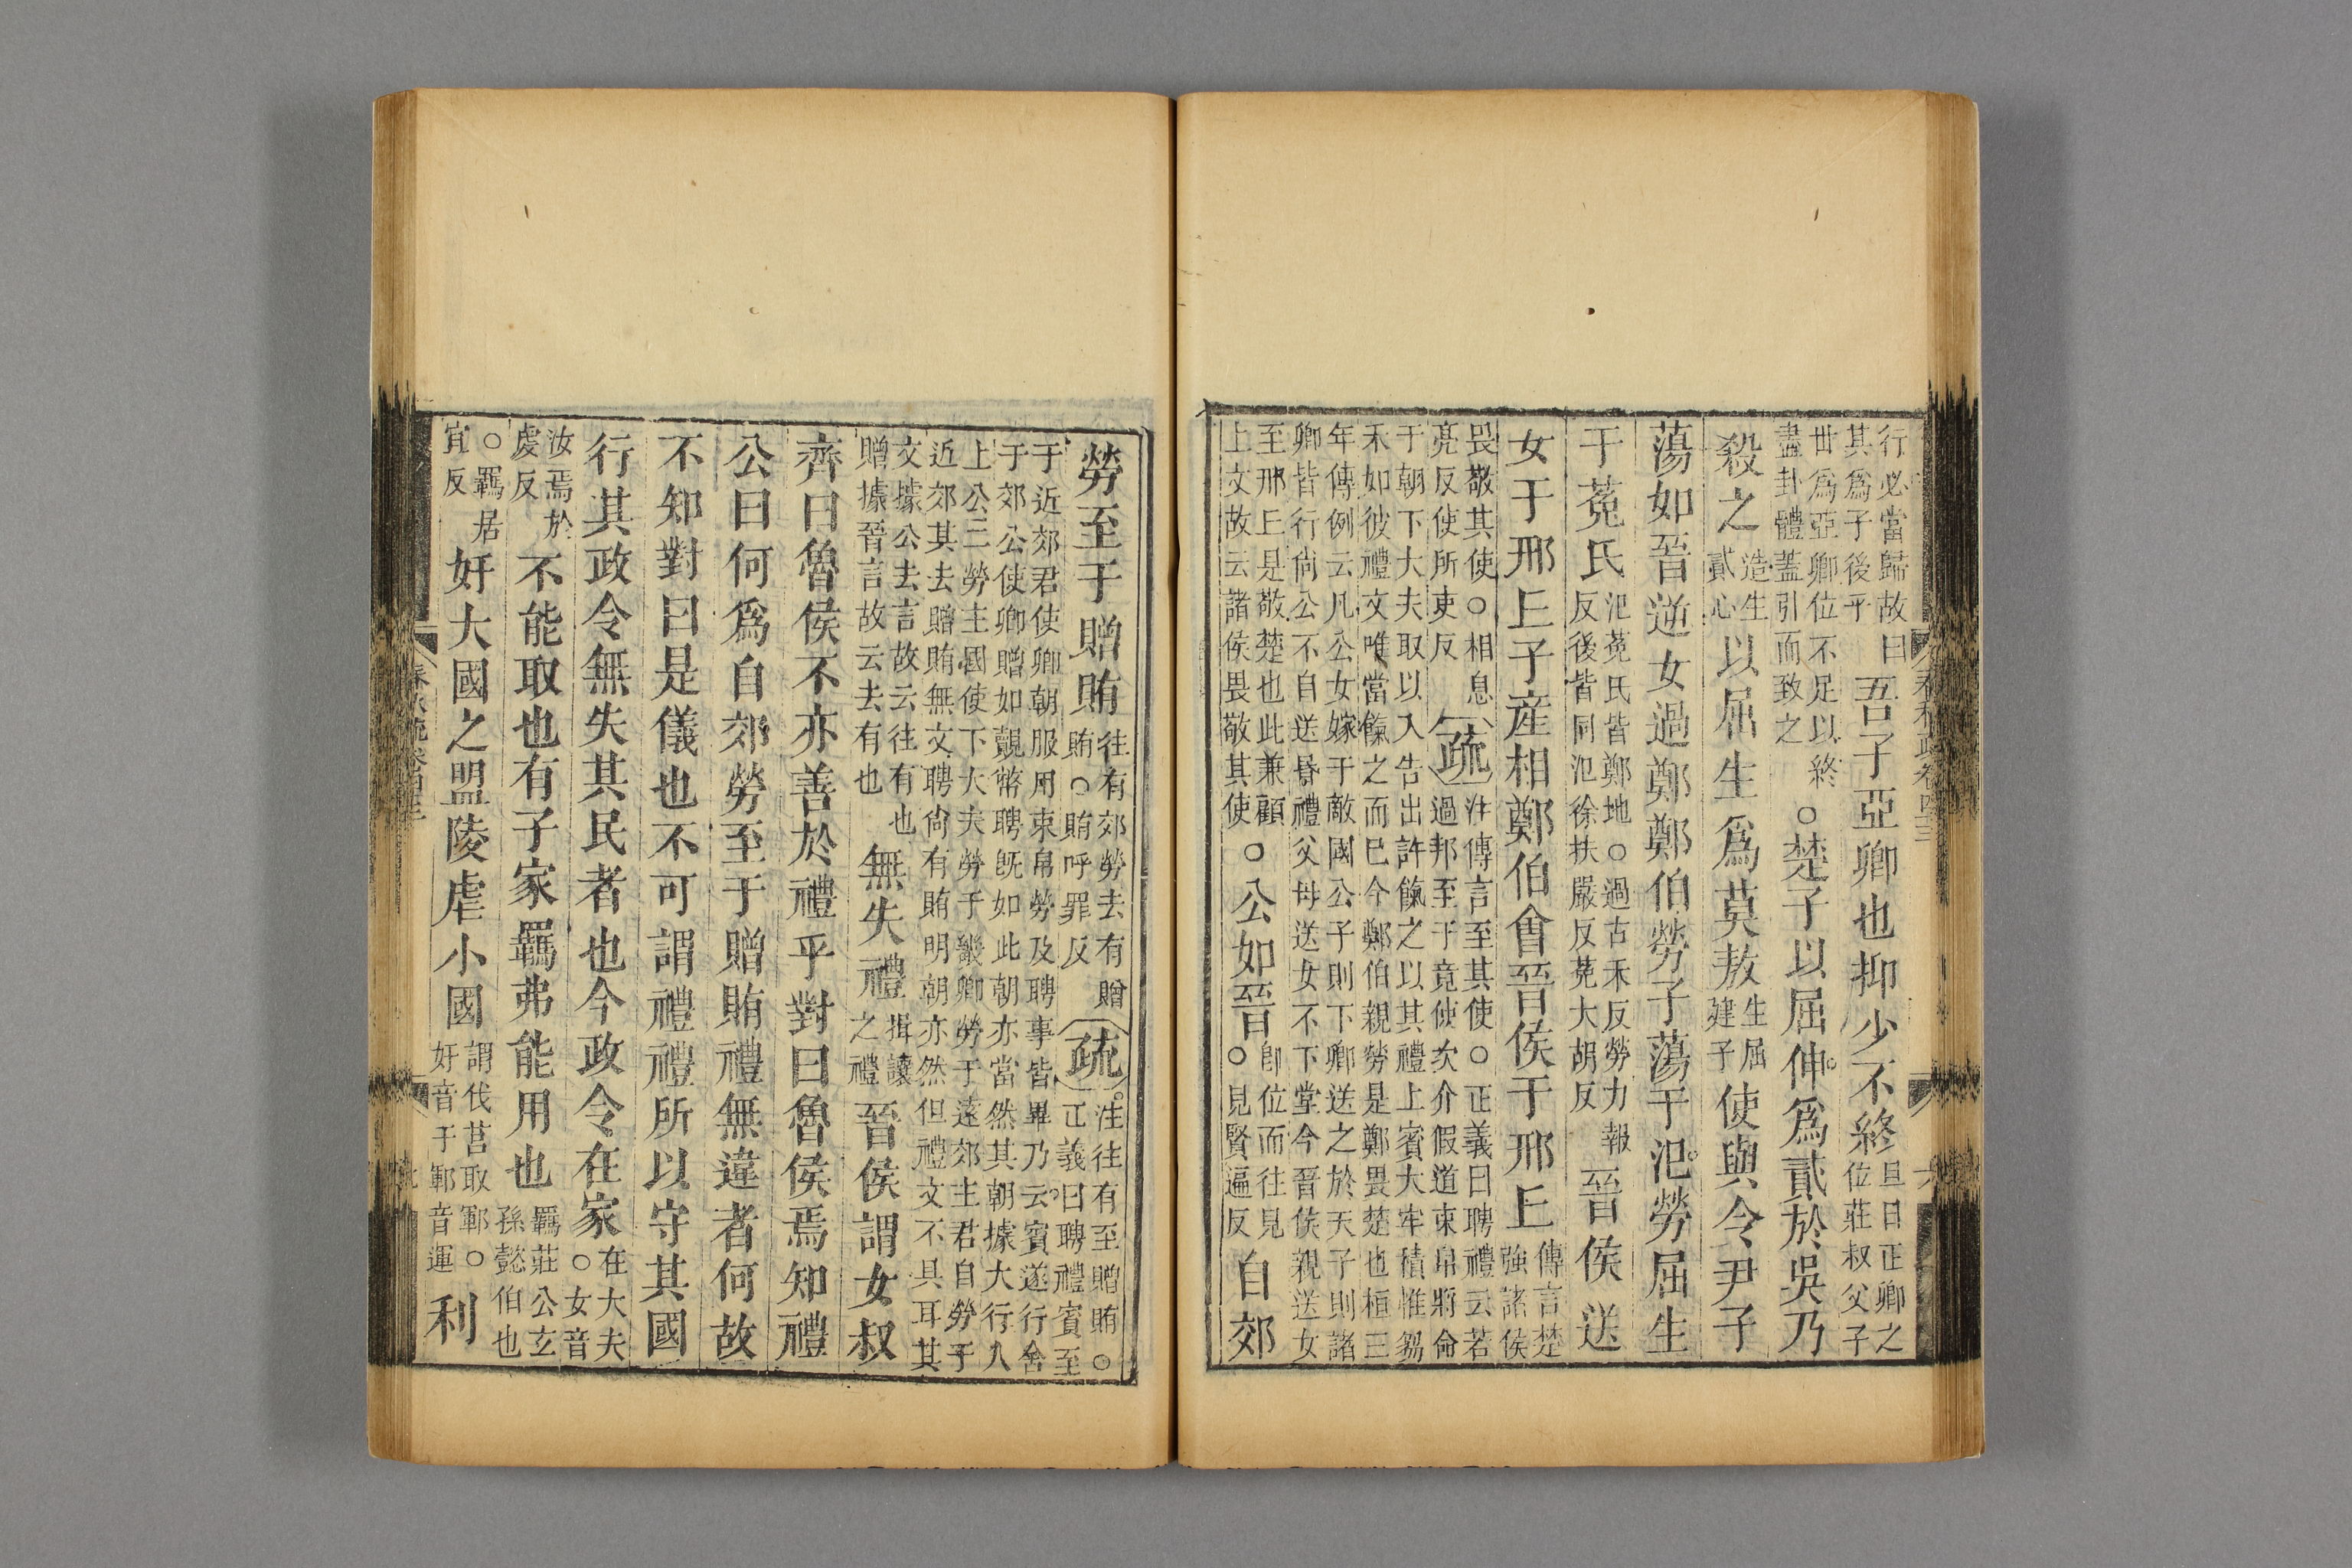 行必當歸故曰
其爲子後乎
吾子亞卿也抑少不終
旦日正卿之
位莊叔父子
世爲亞卿位不足以終
盡卦體蓋引而致之
○楚子以屈伸爲貳於吳乃
殺之
造生
貳心
以屈生爲莫敖
生屈
建子
使與令尹子
蕩如晉逆女過鄭鄭伯勞子蕩于氾勞屈生
于菟氏
氾菟氏皆鄭地○過古禾反勞力報
反後皆同氾徐扶嚴反菟大胡反
晉侯送
女于邢丘子産相鄭伯會晉侯于邢丘
傳言楚
強諸侯
畏敬其使○相息
亮反使所吏反
疏
注傳言至其使○正義曰聘禮云若
過邦至于竟使次介假道束帛將命
于朝下大夫取以入告出許餼之以其禮上賓大牢積惟芻
禾如彼禮文唯當餼之而已今鄭伯親勞是鄭畏楚也桓三
年傳例云凡公女嫁于敵國公子則下卿送之於天子則諸
卿皆行尙公不自送昏禮父母送女不下堂今晉侯親送女
至邢丘是敬楚也此兼顧
上文故云諸侯畏敬其使
○公如晉
卽位而往見
○見賢遍反
自郊
勞至于贈賄
往有郊勞去有贈
賄○賄呼罪反
疏
注往有至贈賄○
正義曰聘禮賓至
于近郊君使卿朝服用束帛勞及聘事皆畢乃云賓遂行舍
于郊公使卿贈如覿幣聘旣如此朝亦當然其朝據大行人
上公三勞主國使下大夫勞于畿卿勞于遠郊主君自勞于
近郊其去贈賄無文聘尙有賄明朝亦然但禮文不具耳其
交據公去言故云往有也
贈據晉言故云去有也
無失禮
揖讓
之禮
晉侯謂女叔
齊曰魯侯不亦善於禮乎對曰魯侯焉知禮
公曰何爲自郊勞至于贈賄禮無違者何故
不知對曰是儀也不可謂禮禮所以守其國
行其政令無失其民者也今政令在家
在大夫
○女音
汝焉於
虔反
不能取也有子家羈弗能用也
羈莊公玄
孫懿伯也
○羈居
宜反
奸大國之盟陵虐小國
謂伐莒取鄆○
奸音干鄆音運
利